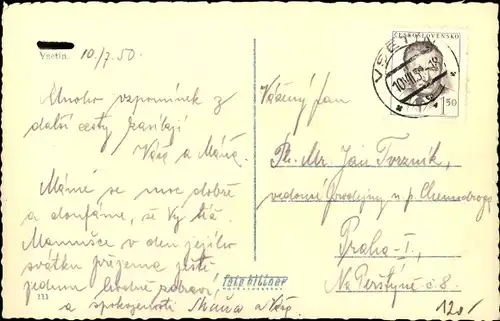 Vsetín. 10./7. 50.
Mnoho vzpomínek z
další cesty zasílají
Váša a Máňa.
Máme se moc dobře
a doufáme, že Vy též.
Mamušce v den jejího
svátku přejeme ještě
jednou hodně zdraví,
a spokojenosti Máňa a Váša
111
foto bittner
ČESKOSLOVENSKO
1,50
VSETÍN
10.VII.50-18
Vážený pan
Ph. Mr. Jan Tvrzník,
vedoucí prodejny n. p. Chemodroga
Praha-I.,
Na Perštýně č. 8.